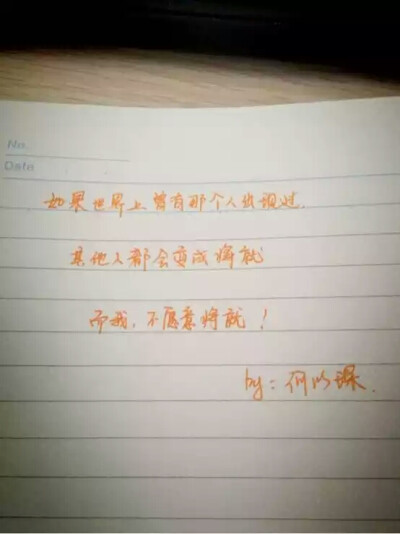 No.
Date
如果世界上曾有那个人出现过.
其他人都会变成将就
而我,不愿意将就!
by:何以琛.